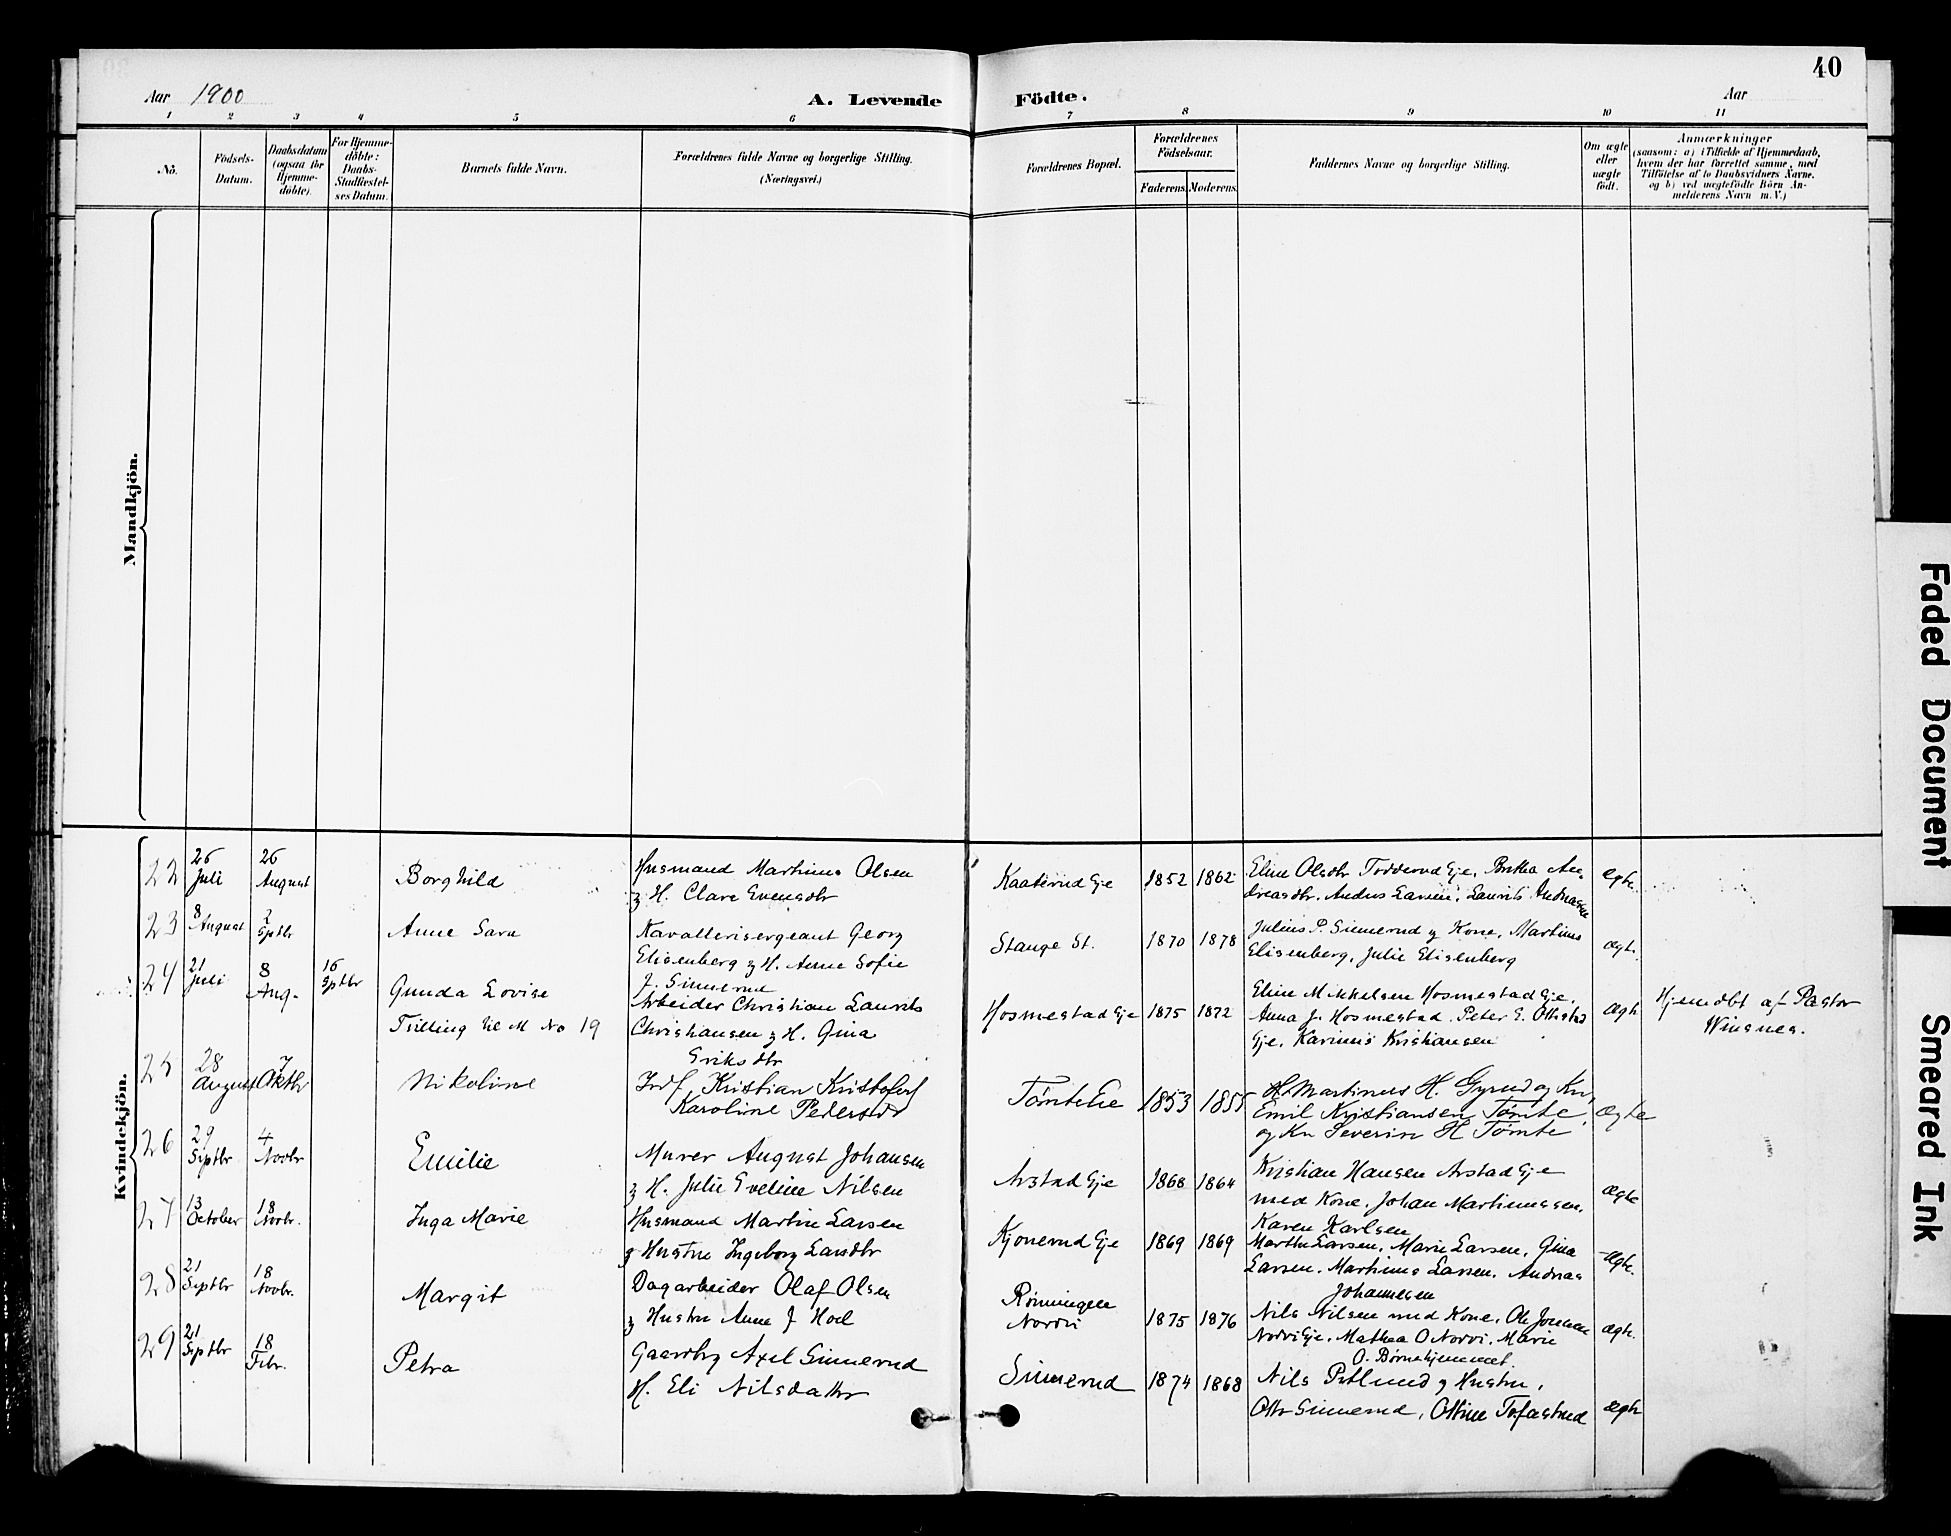 40
Aar 1900
A. Levende
Födte.
Aar
1 2 3 4 5 6 7 8 9 10 11
No.
Födsels-
Datum.
Daabsdatum
(ogsaa for
Hjemme-
döbte).
For Hjemme-
döbte:
Daabs-
Stadfæstel-
ses Datum.
Barnets fulde Navn.
Forældrenes fulde Navne og borgerlige Stilling.
(Næringsvei.)
Forældrenes Bopæl.
Forældrenes
Födselsaar.
Faderens. Moderens.
Faddernes Navne og borgerlige Stilling.
Om ægte
eller
uægte
födt.
Anmærkninger
(saasom: a) i Tilfælde af Hjemmedaab,
hvem der har forrettet samme, med
Tilföielse af to Daabsvidners Navne.
og b) ved uægtefödte Börn An-
melderens Navn m.V.)
Mandkjön.
Kvindekjön.
22
26 Juli
26 August
Borghild
Husmand Martinus Olsen
og H. Clara Evensdtr
Kaaterud Eje
1852 1862
Eline Olsdtr Todderud Eje, Berthea An-
dreasdtr. Anders Larsen, Laurits Andreasen
ægte
23
8 August
2 Sptbr
Anne Sara
Kavallerisergeant Georg
Elisenberg og H. Anne Sofie
J. Sinnerud
Stange St.
1870 1878
Julius P. Sinnerud og Kone, Martinus
Elisenberg, Julie Elisenberg
ægt.
24
21 Juli
8 Aug.
16 Sptbr
Gunda Lovise
Tvilling til M No 19
Arbeider Christian Laurits
Christiansen og H. Gina
Eriksdtr
Hosmestad Eje
1875 1872
Eline Mikkelsen Hosmestad Eje.
Anna J. Hosmestad. Peter E. Ottestad
Eje. Karinus Kristiansen
ægt.
Hjemdbt af Pastor
Winsnes.
25
28 August
7 Oktbr
Nikoline
Indf. Kristian Kristofers
Karoline Pedersdtr
Tømte Eie
1853 1855
H. Martinus H. Gyrud og Kn,
Emil Kristiansen Tømte,
og Kn Severin H Tømte
Ægte
26
29 Septbr
4 Novbr
Emilie
Murer August Johansen
og H. Julie Eveline Nilsen
Arstad Eje
1868 1864
Kristian Hansen Arstad Eje
med Kone, Johan Martinussen,
Karen Karlsen
ægte
27
13 October
18 Novbr.
Inga Marie
Husmand Martin Larsen
og Hustru Ingeborg Larsdtr
Kjonerud Eje
1869 1869
Marthe Larsen, Marie Larsen, Gina
Larsen. Martinus Larsen. Andreas
Johannesen
ægte.
28
21 Septbr
18 Novbr.
Margit
Dagarbeider Olaf Olsen
og Hustru Anne J Hoel
Rønningen
Nordvi
1875 1876
Nils Nilsen med Kone. Ole Jonsen
Nordvi Eje. Mathea O Nordvi. Marie
O. Børnehjemmet.
ægt.
29
21 Septbr
18 Febr.
Petra
Gaardbr Axel Sinnerud
H. Eli Nilsdatter
Sinnerud
1874 1868
Nils Petlund og Hustru,
Otto Sinnerud, Ottine Tofastrud
ægte
Faded Document
Smeared Ink